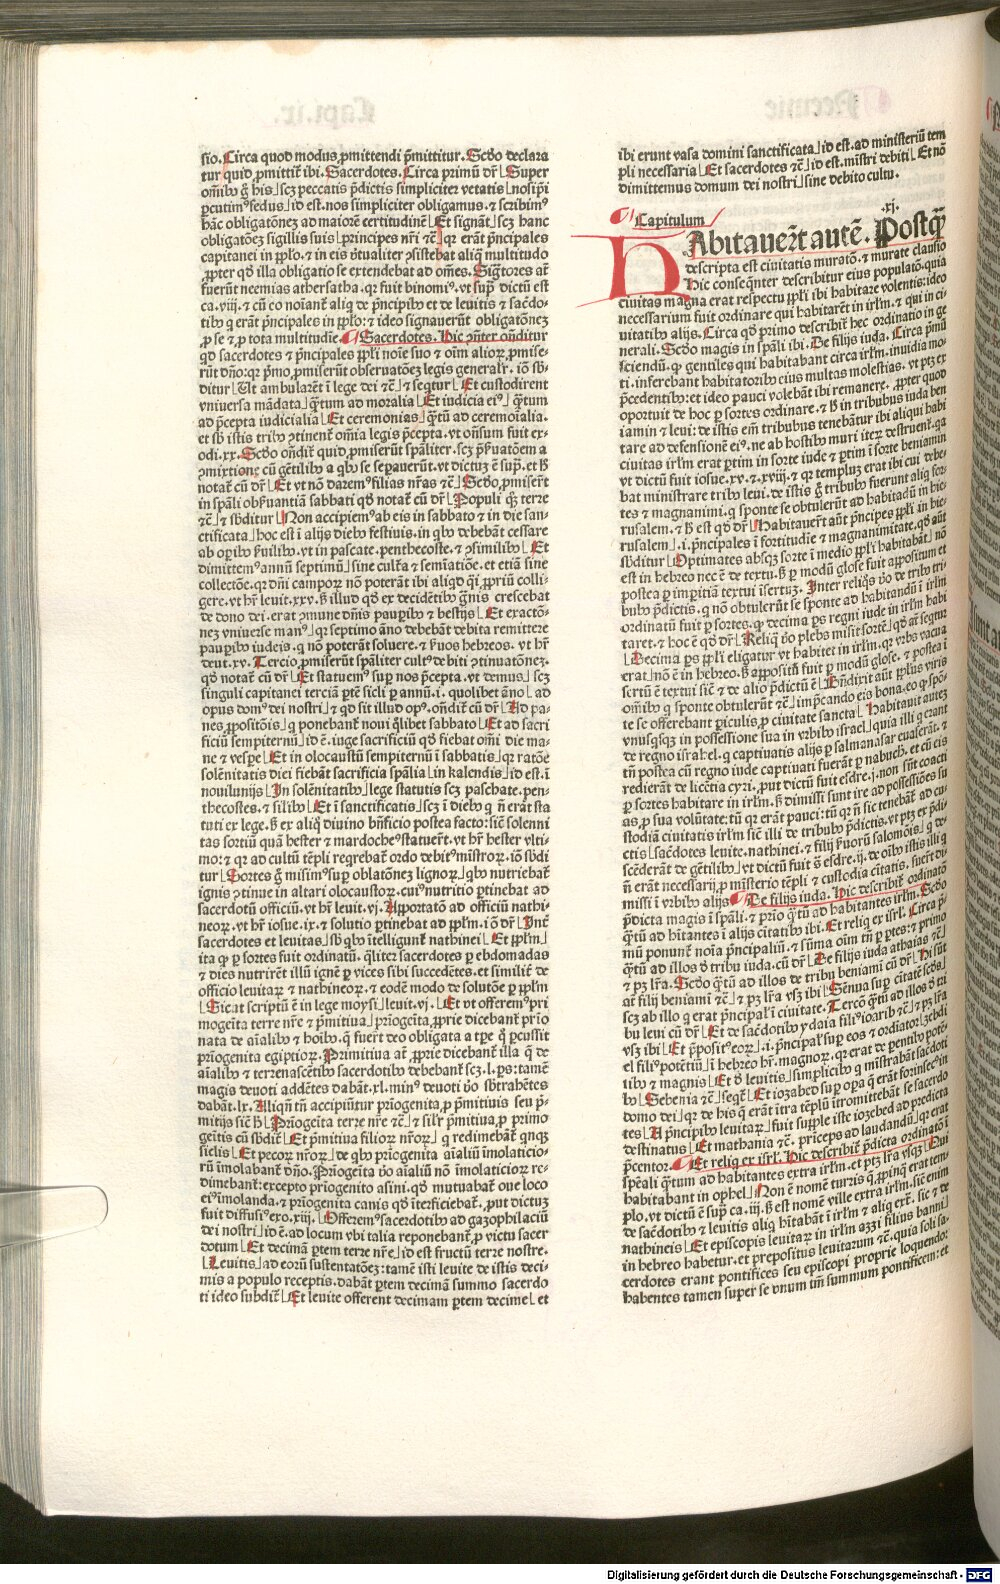 sio. Circa quod modus ꝓmittendi p̃mittitur. Scđo declara
tur quid ꝓmittit̃ ibi. Sacerdotes. Circa primũ dr̃ ⌊Super
om̃ibꝫ g̃ his⌋ scꝫ peccatis p̃dictis simpliciter vetatis ⌊nosip̃i
ꝑcutimꝰ fedus⌋ id est. nos simpliciter obligamus. ⁊ scribimꝰ
hãc obligatõnez ad maiorẽ certitudinẽ ⌊Et signãt⌋ scꝫ hanc
obligatõez sigillis suis ⌊principes nr̃i ⁊c̃⌋ qꝛ erãt p̃ncipales
capitanei in ꝓp̃lo. ⁊ in eis ṽtualiter ↄsistebat aliq̃ multitudo
ꝓpter qđ illa obligatio se extendebat ad om̃es. Sig̃tores at̃
fuerũt neemias athersatha. qꝛ fuit binomiꝰ. vt sup̃ dictũ est
ca. viij. ⁊ cũ eo noĩant̃ aliq̃ de p̃ncipibꝫ et de leuitis ⁊ sac̃do-
tibꝫ q erãt p̃ncipales in ꝓp̃lo: ⁊ ideo signauerũt obligatõnez
ꝓ se ⁊ ꝓ tota multitudie. Sacerdotes. Hic ↄñter oñditur
qđ sacerdotes ⁊ p̃ncipales ꝓp̃li nõie suo ⁊ oĩm alioꝝ ꝓmise-
rũt dño: qꝛ p̃mo ꝓmiserũt obseruatõez legis generalꝛ. iõ sb̃-
ditur ⌊Ut ambularẽt ĩ lege dei ⁊c̃⌋ ⁊ seqtur ⌊Et custodirent
vniuersa mãdata⌋ q̃tum ad moralia ⌊Et iudicia eiꝰ⌋ q̃tum
ad p̃cepta iudicialia ⌊Et ceremonias⌋ q̃tũ ad ceremoĩalia.
et sb̃ istis tribꝫ ↄtinent̃ om̃ia legis p̃cepta. vt oñsum fuit ex-
odi. xx. Scđo oñdit̃ quid ꝓmiserũt spãliter. scꝫ p̃seruatõem a
ↄmixtione cũ g̃tilibꝫ a qbꝫ se sepauerũt. vt dictuz ẽ sup̃. et h̃
notat̃ cũ dr̃ ⌊Et vt nõ daremꝰ filias nr̃as ⁊c̃⌋ Scđo ꝓmiserũt
in spãli obseruantiã sabbati qđ notat̃ cũ dr̃ ⌊Populi q̃ꝫ terre
⁊c̃⌋ ⁊ sb̃ditur ⌊Non accipiemꝰ ab eis in sabbato ⁊ in die san-
ctificata⌋ hoc est ĩ alijs diebꝫ festiuis. in qbꝫ debebãt cessare
ab opibꝫ seruilibꝫ. vt in pascate. penthecoste. ⁊ ↄsimilibꝫ ⌊Et
dimittemꝰ annũ septimũ⌋ sine cultr̃a ⁊ semĩatiõe. et etiã sine
collectõe. qꝛ dñi campoꝝ nõ poterãt ibi aliqđ qĩ ꝓpriũ colli-
gere. vt hr̃ leuit. xxv. h̃ illud qđ ex decidẽtibꝫ g̃nis crescebat
de dono dei. erat ↄmune dñis paupibꝫ ⁊ bestijs ⌊Et exactõ-
nez vniuerse manꝰ⌋ qꝛ septimo ãno debebãt debita remittere
paupibꝫ iudeis. q̃ nõ poterãt soluere. ⁊ seruos hebreos. vt hr̃
deut. xv. Tercio ꝓmiserũt spãliter cultꝰ debiti ↄtinuatõnez.
qđ notat̃ cũ dr̃ ⌊Et statuemꝰ sup nos p̃cepta. vt demus⌋ scꝫ
singuli capitanei terciã ptẽ sicli p annũ. i. quolibet ãno⌋ ad
opus domꝰ dei nostri⌋ ⁊ qđ sit illud opꝰ. oñdit̃ cũ dr̃ ⌊Ad pa-
nes ꝓpositõis⌋ q̃ ponebant̃ noui q̃libet sabbato ⌊Et ad sacri
ficiũ sempiternũ⌋ id ẽ. iuge sacrificiũ qđ fiebat om̃i die ma-
ne ⁊ vespe ⌊Et in olocaustũ sempiternũ ĩ sabbatis⌋ qꝛ ratõe
solẽnitatis diei fiebãt sacrificia spãlia ⌊in kalendis⌋ id est. ĩ
nouilunijs ⌊In solẽnitatibꝫ⌋ lege statutis scꝫ paschate. pen-
thecostes. ⁊ silibꝫ ⌊Et ĩ sanctificatis⌋ scꝫ ĩ diebꝫ q̃ ñ erãt sta
tuti ex lege. h̃ ex aliq̃ diuino bñficio postea facto: sic̃ solenni
tas sortiũ quã hester ⁊ mardocheꝰ statuer̃t. vt hr̃ hester vlti-
mo: ⁊ qꝛ ad cultũ tẽpli reqrebat̃ ordo debitꝰ mĩstroꝝ. iõ sb̃di
tur ⌊Sortes g̃ misimꝰ sup oblatõnez lignoꝝ⌋ qbꝫ nutriebat̃
ignis ↄtinue in altari olocaustoꝝ. cuiꝰ nutritio ptinebat ad
sacerdotũ officiũ. vt hr̃ leuit. vj. Apportatõ ad officiũ nathi-
neoꝝ. vt hr̃ iosue. ix. ⁊ solutio ptinebat ad ꝓp̃lm. iõ dr̃ ⌊Int̃
sacerdotes et leuitas⌋ sb̃ qbꝫ ĩtelligunt̃ nathinei ⌊Et ꝓp̃lm⌋
ita qꝫ p sortes fuit ordinatũ. q̃liter sacerdotes p ebdomadas
⁊ dies nutrirẽt illũ ignẽ p vices sibi succedẽtes. et similit̃ de
officio leuitaꝝ ⁊ nathineoꝝ. ⁊ eodẽ modo de solutõe p ꝓp̃lm
⌊Sicut scriptũ ẽ in lege moysi⌋ leuit. vj. ⌊Et vt offeremꝰ pri
mogeita terre nr̃e ⁊ p̃mitiua⌋ p̃riogeĩta ꝓprie dicebant̃ p̃rio
nata de aĩalibꝫ ⁊ hoĩbꝫ. q̃ fuer̃t deo obligata a tp̃e q̃ pcussit
p̃riogenita egiptioꝝ. Primitiua at̃ ꝓprie dicebant̃ illa q̃ de
aĩalibꝫ ⁊ terrenascẽtibꝫ sacerdotibꝫ debebant̃ scꝫ. l. ps: tamẽ
magis deuoti addẽtes dabãt. xl. minꝰ deuoti ṽo sb̃trahẽtes
dabãt. lx. Aliqñ tñ accipiũtur p̃riogenita ꝓ p̃mitiuis seu p̃-
mitijs sic̃ h̃ ⌊Priogeita terre nr̃e ⁊c̃⌋ ⁊ silr̃ p̃mitiua ꝓ primo
geĩtis cũ sb̃dit̃ ⌊Et p̃mitiua filioꝝ nr̃oꝝ⌋ q̃ redimebãt̃ qnqꝫ
siclis ⌊Et pecoꝝ nr̃oꝝ⌋ de qbꝫ p̃riogenita aĩaliũ ĩmolaticio-
rũ ĩmolabant̃ dño. Priogeĩta ṽo aĩaliũ nõ ĩmolaticioꝝ re-
dimebant̃: excepto p̃riogenito asini. qđ mutuabat̃ oue loco
eiꝰ ĩmolanda. ⁊ p̃riogenita canis qđ ĩterficiebat̃. put dictuz
fuit diffusiꝰ exo. xiij. ⌊Offeremꝰ sacerdotibꝫ ad gazophilaciũ
dei nostri⌋ id ẽ. ad locum vbi talia reponebant̃. ꝓ victu sacer
dotum ⌊Et decimã ptem terre nr̃e⌋ id est fructũ terre nostre.
⌊Leuitis⌋ ad eorũ sustentatõez: tamẽ isti leuite de istis deci-
mis a populo receptis. dabãt ptem decimã summo sacerdo
ti ideo subdit̃ ⌊Et leuite offerent decimam ptem decime⌋ et
ibi erunt vasa domini sanctificata⌋ id est. ad ministeriũ tem
pli necessaria ⌊Et sacerdotes ⁊c̃⌋ id est. mĩstri debiti ⌊Et nõ
dimittemus domum dei nostri⌋ sine debito cultu.
Capitulum .xj.
HAbitauer̃t autẽ. Postq̃
descripta est ciuitatis muratõ. ⁊ murate clausio
Hic conseq̃nter describitur eius populatõ. quia
ciuitas magna erat respectu ꝓp̃li ibi habitare volentis: ideo
necessarium fuit ordinare qui habitarẽt in irlm̃. ⁊ qui in ci-
uitatibꝫ alijs. Circa qđ primo describit̃ hec ordinatio in ge
nerali. Scđo magis in spãli ibi. De filijs iuda. Circa p̃mũ
sciendũ. qꝫ gentiles qui habitabant circa irlm̃. inuidia mo-
ti. inferebant habitatoribꝫ eius multas molestias. vt ptꝫ ex
p̃cedentibꝫ: et ideo pauci volebãt ibi remanere. ꝓpter quod
oportuit de hoc p sortes ordinare. ⁊ h̃ in tribubus iuda ben
iamin ⁊ leui: de istis em̃ tribubus tenebãtur ibi aliqui habi
tare ad defensionẽ eiꝰ. ne ab hostibꝫ muri iteꝝ destruerent̃. qꝛ
ciuitas irlm̃ erat ptim in sorte iude ⁊ ptim ĩ sorte beniamin
vt dictũ fuit iosue. xv. ⁊. xviij. ⁊ qꝛ templuz erat ibi cui debe-
bat ministrare tribꝫ leui. de istis g̃ tribubꝫ fuerunt aliq̃ for-
tes ⁊ magnanimi. q̃ sponte se obtulerũt ad habitãdũ in hie-
rusalem. ⁊ h̃ est qđ dr̃ ⌊Habitauer̃t aũt p̃ncipes ꝓp̃li in hie-
rusalem⌋. i. p̃ncipales ĩ fortitudie ⁊ magnanimitate. qđ aũt
sb̃ditur ⌊Optimates absqꝫ sorte ĩ medio ꝓp̃li habitabãt⌋ nõ
est in hebreo nec ẽ de textu. h̃ p modũ glose fuit appositum et
postea p impitiã textui ĩsertuꝫ. Inter reliqs ṽo de tribꝫ tri-
bubꝫ p̃dictis. q̃ nõ obtulerũt se sponte ad habitandũ ĩ irlm̃
ordinatũ fuit p sortes. qꝫ decima ps regni iude in irlm̃ habi
taret. ⁊ hoc ẽ qđ dr̃ ⌊Reliq̃ ṽo plebs misit sortẽ⌋ qđ at̃ seqtur
⌊Decima ps ꝓp̃li eligatur vt habitet in irlm̃. qꝛ vrbs vacua
erat⌋ nõ ẽ in hebreo. h̃ appositũ fuit p modũ glose. ⁊ postea ĩ
sertũ ẽ textui sic̃ ⁊ de alio p̃dictũ ẽ ⌊Bñdixit aũt ꝓp̃lus viris
om̃ibꝫ q̃ sponte obtulerũt ⁊c̃⌋ imp̃cando eis bona. eo qꝫ spõ-
te se offerebant piculis. ꝓ ciuitate sancta ⌊Habitauit autez
vnusqsqꝫ in possessione sua in vrbibꝫ israel⌋ quia illi q̃ erant
de regno israhel. q̃ captiuatis alijs p salmanasar euaserãt. ⁊
tñ postea cũ regno iude captiuati fuerãt p nabuch. et cũ eis
redierãt de licẽtia cyri. put dictũ fuit esdre. j. non sunt coacti
p sortes habitare in irlm̃. h̃ dimissi sunt ire ad possessiões su
as ꝓ sua volũtate: tũ qꝛ erãt pauci: tũ qꝛ ñ sic tenebãt̃ ad cu-
stodiã ciuitatis irlm̃ sic̃ illi de tribubꝫ p̃dictis. vt ptꝫ ex p̃di-
ctis ⌊sac̃dotes leuite. nathinei. ⁊ filij seruorũ salomõis⌋ q̃ de-
scẽderãt de g̃tilibꝫ⌋ vt dictũ fuit s̃ esdre. ij. de oĩbꝫ istis illi q̃
ñ erãt necessarij ꝓ mĩsterio tẽpli ⁊ custodia ciẽtatis. fuer̃t di-
missi ĩ vrbibꝫ alijs De filijs iuda. Hic describit̃ ordinatõ
p̃dicta magis ĩ spãli. ⁊ p̃rio q̃tũ ad habitantes irlm̃. Scđo
q̃tũ ad hĩtantes ĩ alijs citatibꝫ ibi. Et reliq̃ ex isrl̃. Circa p̃-
mũ ponunt̃ noĩa p̃ncipaliũ. ⁊ sũma oĩm tñ p ptes: ⁊ primo
q̃tũ ad illos đ tribu iuda. cũ dr̃ ⌊De filijs iuda athaias ⁊c̃⌋
⁊ pꝫ lr̃a. Scđo q̃tũ ad illos de tribu beniami cũ dr̃ ⌊Hi sũt
at̃ filij beniami ⁊c̃⌋ ⁊ pꝫ lr̃a vsqꝫ ibi ⌊Senua sup citatẽ scđs⌋
scꝫ ab illo q̃ erat p̃ncipal̃ ĩ ciuitate. Tercõ q̃tũ ad illos đ tri
bu leui cũ dr̃ ⌊Et de sac̃dotibꝫ ydaia filiꝰ ioarib ⁊c̃⌋ ⁊ pꝫ lr̃a
vsqꝫ ibi ⌊Et p̃positꝰ eoꝝ⌋. i. p̃ncipal̃ sup eos ⁊ ordiator ⌊zebdi
el filiꝰ potẽtiũ⌋ ĩ hebreo hr̃. magnoꝝ. qꝛ erat de pentibꝫ potẽ-
tibꝫ ⁊ magnis ⌊Et đ leuitis⌋ simplicibꝫ q̃ mĩstrabãt sac̃doti
bꝫ ⌊Sebenia ⁊c̃⌋ seqt̃ ⌊Et iozabed sup opa q̃ erãt forinsec̃ in
domo dei⌋ qꝛ de his q̃ erãt ĩtra tẽplũ ĩtromittebãt̃ se sacerdo
tes ⌊A p̃ncipibꝫ leuitaꝝ⌋ fuit supple iste iozebed ad predicta
destinatus ⌊Et mathania ⁊c̃. p̃riceps ad laudandũ⌋ qꝛ erat
p̃centor. Et reliq̃ ex isrl̃. Hic describit̃ p̃dicta ordinatõ ĩ
spẽali q̃tum ad habitantes extra irlm̃. et ptꝫ lr̃a vsqꝫ ⌊Qui
habitabant in ophel⌋ Non ẽ nomẽ turris q̃ ꝓpinq̃ erat tem-
plo. vt dictũ ẽ sup̃ ca. iij. h̃ est nomẽ ville extra irlm̃. sic̃ enim
de sac̃dotibꝫ ⁊ leuitis aliq̃ hĩtabãt ĩ irlm̃ ⁊ aliq̃ ext̃. sic ⁊ de
nathineis ⌊Et episcopis leuitaꝝ in irlm̃ azzi filius banni⌋
in hebreo habetur. et prepositus leuitarum ⁊c̃. quia soli sa-
cerdotes erant pontifices seu episcopi proprie loquendo:
habentes tamen super se vnum im̃ summum pontificem: et
Digitalisierung gefördert durch die Deutsche Forschungsgemeinschaft - DFG